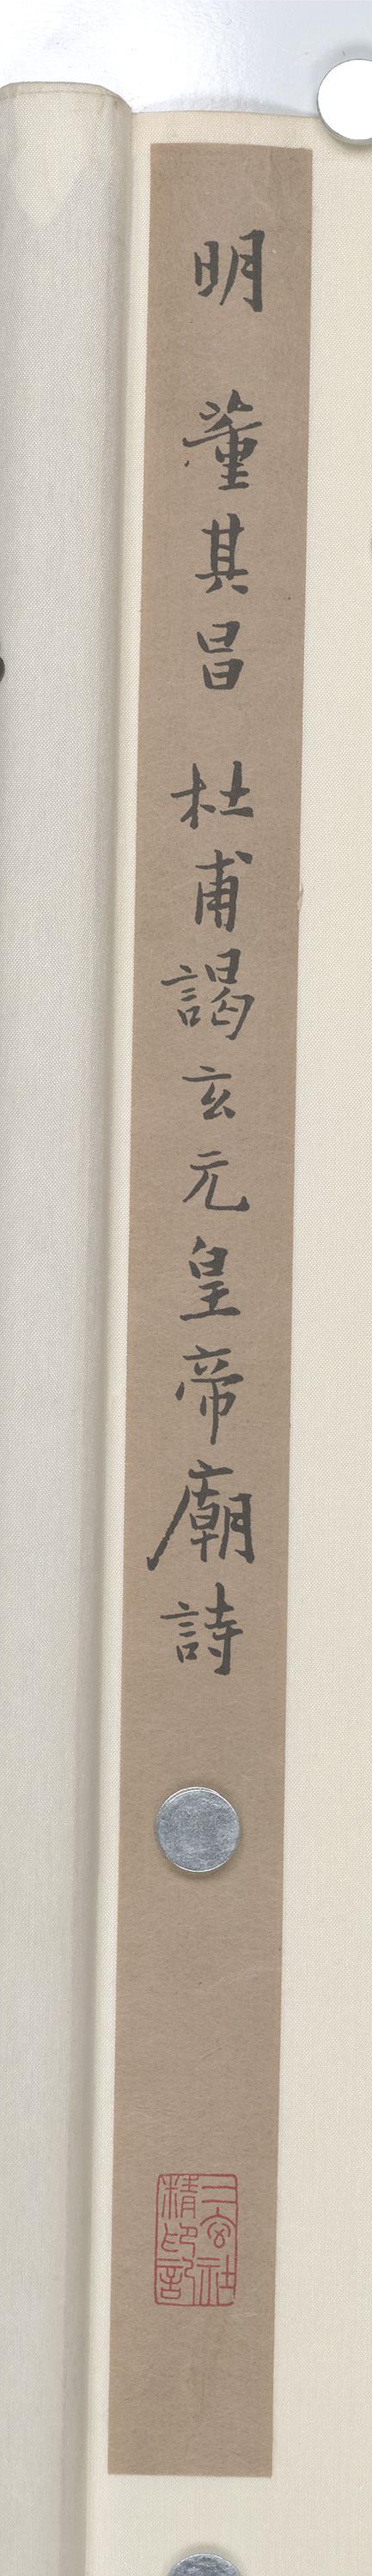 明 董其昌 杜甫謁玄元皇帝廟詩
二玄社
精印記